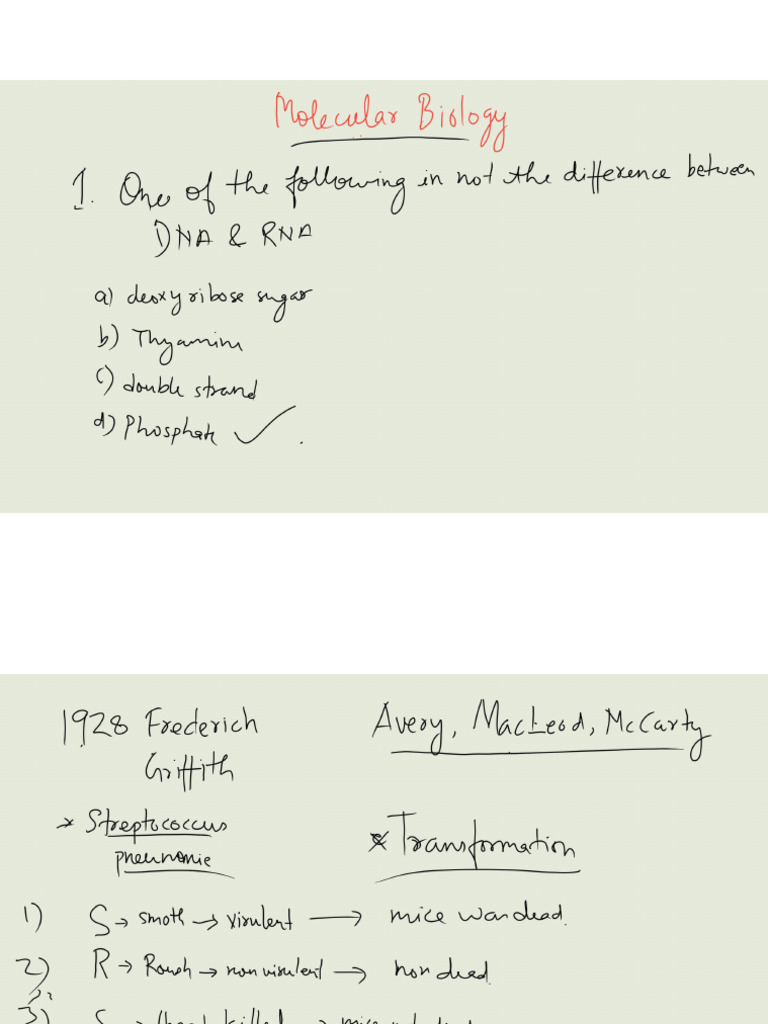 Molecular Biology
1. One of the following in not the difference between
DNA & RNA
a) deoxyribose sugar
b) Thyamine
c) double strand
d) Phosphate ✓.
1928 Frederich
Griffith
Avery, MacLeod, McCarty
* Streptococcus
pneunomie
* Transformation
1) S → smoth → virulent → mice was dead.
2) R → Rough → non virulent → non dead.
3) S → heat killed → mice